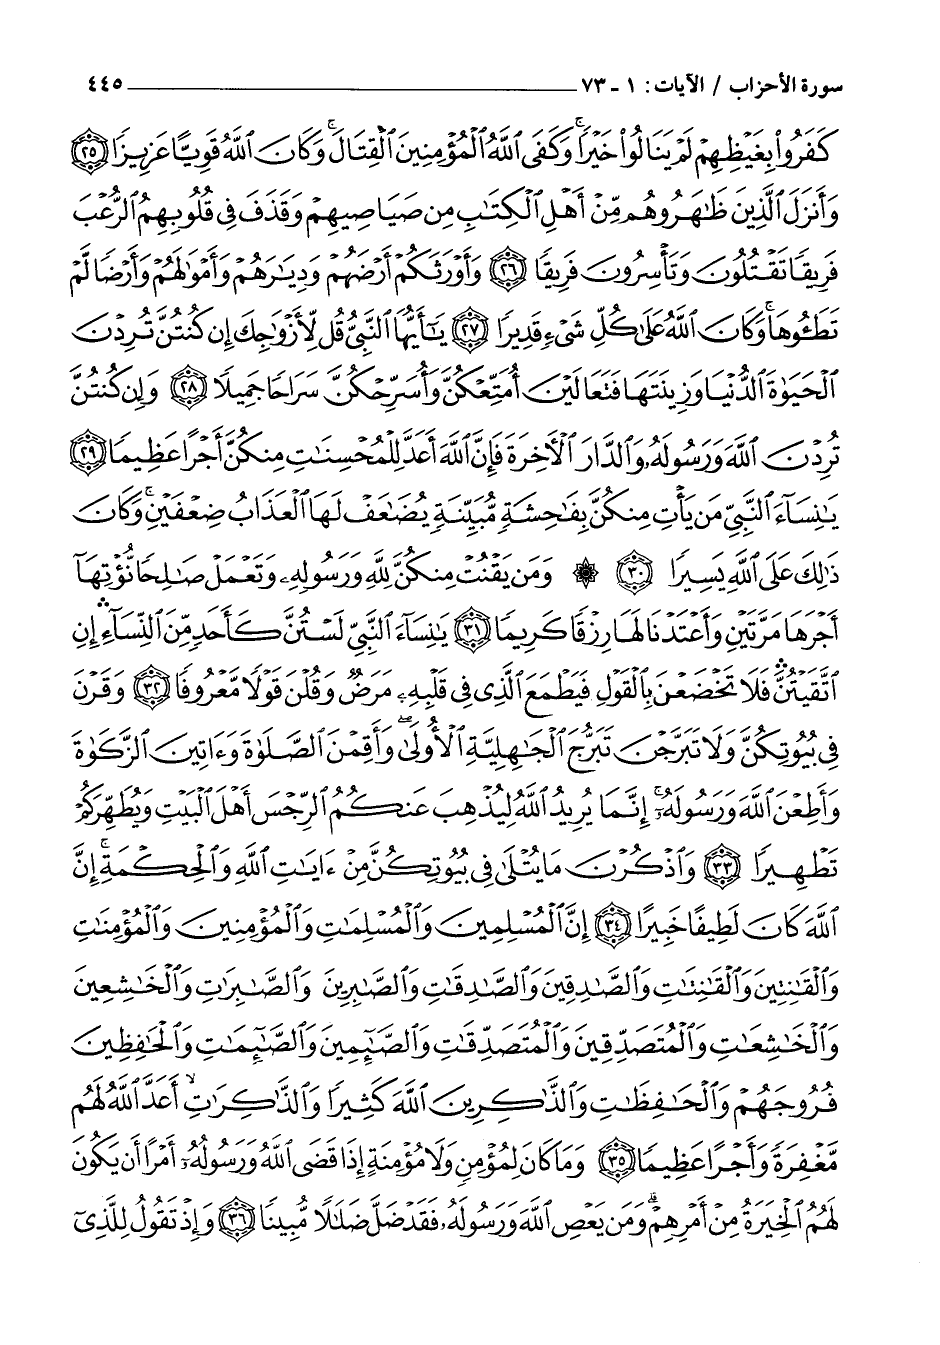 سورة الأحزاب / الآيات: ١ - ٧٣ ٤٤٥
كَفَرُوا۟ بِغَيْظِهِمْ لَمْ يَنَالُوا۟ خَيْرًا ۚ وَكَفَى ٱللَّهُ ٱلْمُؤْمِنِينَ ٱلْقِتَالَ ۚ وَكَانَ ٱللَّهُ قَوِيًّا عَزِيزًا ﴿٢٥﴾
وَأَنزَلَ ٱلَّذِينَ ظَٰهَرُوهُم مِّنْ أَهْلِ ٱلْكِتَٰبِ مِن صَيَاصِيهِمْ وَقَذَفَ فِى قُلُوبِهِمُ ٱلرُّعْبَ
فَرِيقًا تَقْتُلُونَ وَتَأْسِرُونَ فَرِيقًا ﴿٢٦﴾ وَأَوْرَثَكُمْ أَرْضَهُمْ وَدِيَٰرَهُمْ وَأَمْوَٰلَهُمْ وَأَرْضًا لَّمْ
تَطَـُٔوهَا ۚ وَكَانَ ٱللَّهُ عَلَىٰ كُلِّ شَىْءٍ قَدِيرًا ﴿٢٧﴾ يَٰٓأَيُّهَا ٱلنَّبِىُّ قُل لِّأَزْوَٰجِكَ إِن كُنتُنَّ تُرِدْنَ
ٱلْحَيَوٰةَ ٱلدُّنْيَا وَزِينَتَهَا فَتَعَالَيْنَ أُمَتِّعْكُنَّ وَأُسَرِّحْكُنَّ سَرَاحًا جَمِيلًا ﴿٢٨﴾ وَإِن كُنتُنَّ
تُرِدْنَ ٱللَّهَ وَرَسُولَهُۥ وَٱلدَّارَ ٱلْءَاخِرَةَ فَإِنَّ ٱللَّهَ أَعَدَّ لِلْمُحْسِنَٰتِ مِنكُنَّ أَجْرًا عَظِيمًا ﴿٢٩﴾
يَٰنِسَآءَ ٱلنَّبِىِّ مَن يَأْتِ مِنكُنَّ بِفَٰحِشَةٍ مُّبَيِّنَةٍ يُضَٰعَفْ لَهَا ٱلْعَذَابُ ضِعْفَيْنِ ۚ وَكَانَ
ذَٰلِكَ عَلَى ٱللَّهِ يَسِيرًا ﴿٣٠﴾ ۞ وَمَن يَقْنُتْ مِنكُنَّ لِلَّهِ وَرَسُولِهِۦ وَتَعْمَلْ صَٰلِحًا نُّؤْتِهَآ
أَجْرَهَا مَرَّتَيْنِ وَأَعْتَدْنَا لَهَا رِزْقًا كَرِيمًا ﴿٣١﴾ يَٰنِسَآءَ ٱلنَّبِىِّ لَسْتُنَّ كَأَحَدٍ مِّنَ ٱلنِّسَآءِ ۛ إِنِ
ٱتَّقَيْتُنَّ ۛ فَلَا تَخْضَعْنَ بِٱلْقَوْلِ فَيَطْمَعَ ٱلَّذِى فِى قَلْبِهِۦ مَرَضٌ وَقُلْنَ قَوْلًا مَّعْرُوفًا ﴿٣٢﴾ وَقَرْنَ
فِى بُيُوتِكُنَّ وَلَا تَبَرَّجْنَ تَبَرُّجَ ٱلْجَٰهِلِيَّةِ ٱلْأُولَىٰ ۖ وَأَقِمْنَ ٱلصَّلَوٰةَ وَءَاتِينَ ٱلزَّكَوٰةَ
وَأَطِعْنَ ٱللَّهَ وَرَسُولَهُۥٓ ۚ إِنَّمَا يُرِيدُ ٱللَّهُ لِيُذْهِبَ عَنكُمُ ٱلرِّجْسَ أَهْلَ ٱلْبَيْتِ وَيُطَهِّرَكُمْ
تَطْهِيرًا ﴿٣٣﴾ وَٱذْكُرْنَ مَا يُتْلَىٰ فِى بُيُوتِكُنَّ مِنْ ءَايَٰتِ ٱللَّهِ وَٱلْحِكْمَةِ ۚ إِنَّ
ٱللَّهَ كَانَ لَطِيفًا خَبِيرًا ﴿٣٤﴾ إِنَّ ٱلْمُسْلِمِينَ وَٱلْمُسْلِمَٰتِ وَٱلْمُؤْمِنِينَ وَٱلْمُؤْمِنَٰتِ
وَٱلْقَٰنِتِينَ وَٱلْقَٰنِتَٰتِ وَٱلصَّٰدِقِينَ وَٱلصَّٰدِقَٰتِ وَٱلصَّٰبِرِينَ وَٱلصَّٰبِرَٰتِ وَٱلْخَٰشِعِينَ
وَٱلْخَٰشِعَٰتِ وَٱلْمُتَصَدِّقِينَ وَٱلْمُتَصَدِّقَٰتِ وَٱلصَّٰٓئِمِينَ وَٱلصَّٰٓئِمَٰتِ وَٱلْحَٰفِظِينَ
فُرُوجَهُمْ وَٱلْحَٰفِظَٰتِ وَٱلذَّٰكِرِينَ ٱللَّهَ كَثِيرًا وَٱلذَّٰكِرَٰتِ ۙ أَعَدَّ ٱللَّهُ لَهُم
مَّغْفِرَةً وَأَجْرًا عَظِيمًا ﴿٣٥﴾ وَمَا كَانَ لِمُؤْمِنٍ وَلَا مُؤْمِنَةٍ إِذَا قَضَى ٱللَّهُ وَرَسُولُهُۥٓ أَمْرًا أَن يَكُونَ
لَهُمُ ٱلْخِيَرَةُ مِنْ أَمْرِهِمْ ۗ وَمَن يَعْصِ ٱللَّهَ وَرَسُولَهُۥ فَقَدْ ضَلَّ ضَلَٰلًا مُّبِينًا ﴿٣٦﴾ وَإِذْ تَقُولُ لِلَّذِىٓ